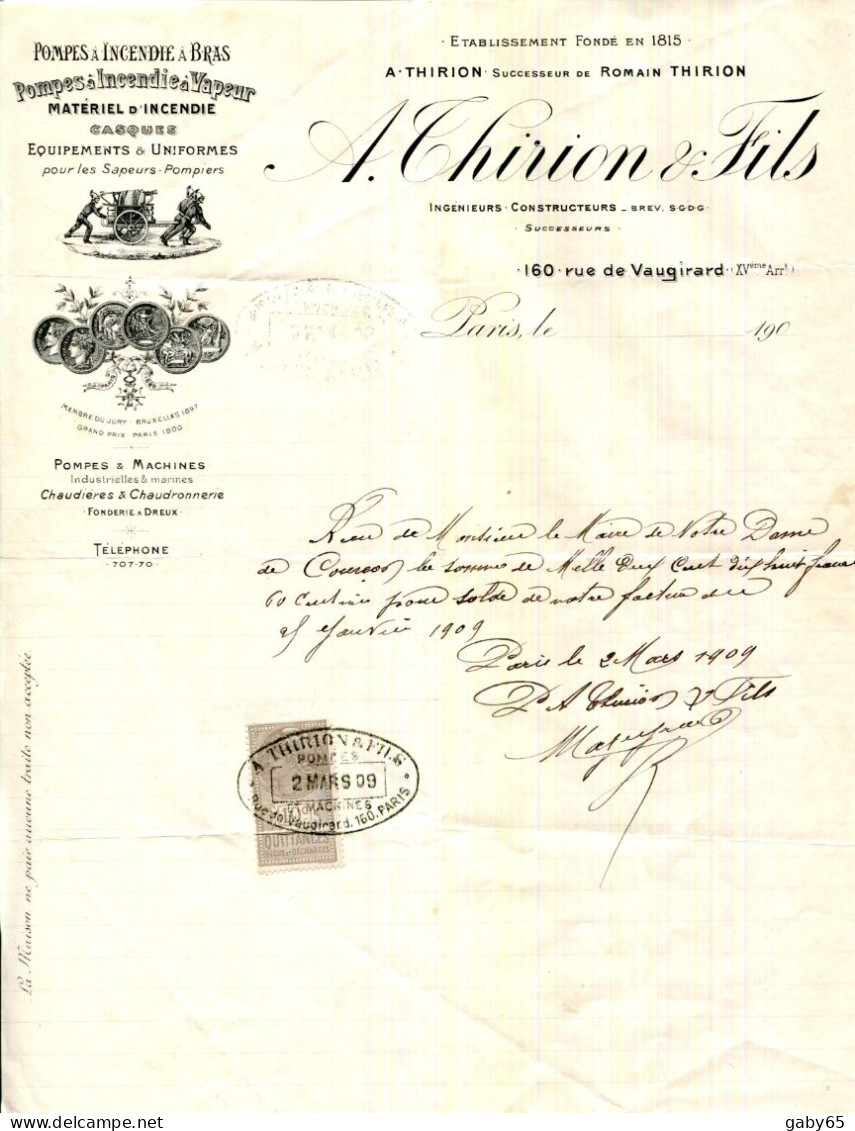 POMPES À INCENDIE À BRAS
Pompes à Incendie à Vapeur
MATÉRIEL D'INCENDIE
CASQUES
EQUIPEMENTS & UNIFORMES
pour les Sapeurs-Pompiers
MEMBRE DU JURY - BRUXELLES 1897
GRAND PRIX PARIS 1900
POMPES & MACHINES
Industrielles & marines
Chaudières & Chaudronnerie
· FONDERIE A DREUX ·
TÉLÉPHONE
· 707-70 ·
· ETABLISSEMENT FONDÉ EN 1815 ·
A · THIRION SUCCESSEUR DE ROMAIN THIRION
A. Thirion & Fils
INGÉNIEURS · CONSTRUCTEURS _ BREV. S.G.D.G.
· SUCCESSEURS ·
· 160 · rue de Vaugirard · (XVème Arrt)
Paris, le 190
Reçu de Monsieur le Maire de Notre Dame
de la somme de Mille deux cent dix huit francs
60 centimes pour solde de notre facture du
Janvier 1909
Paris le 2 Mars 1909
P. A Thirion & Fils
A. THIRION & FILS
POMPES
2 MARS 09
ET MACHINES
Rue de Vaugirard, 160, PARIS
QUITTANCES
La Maison ne paie aucune traite non acceptée
gaby65